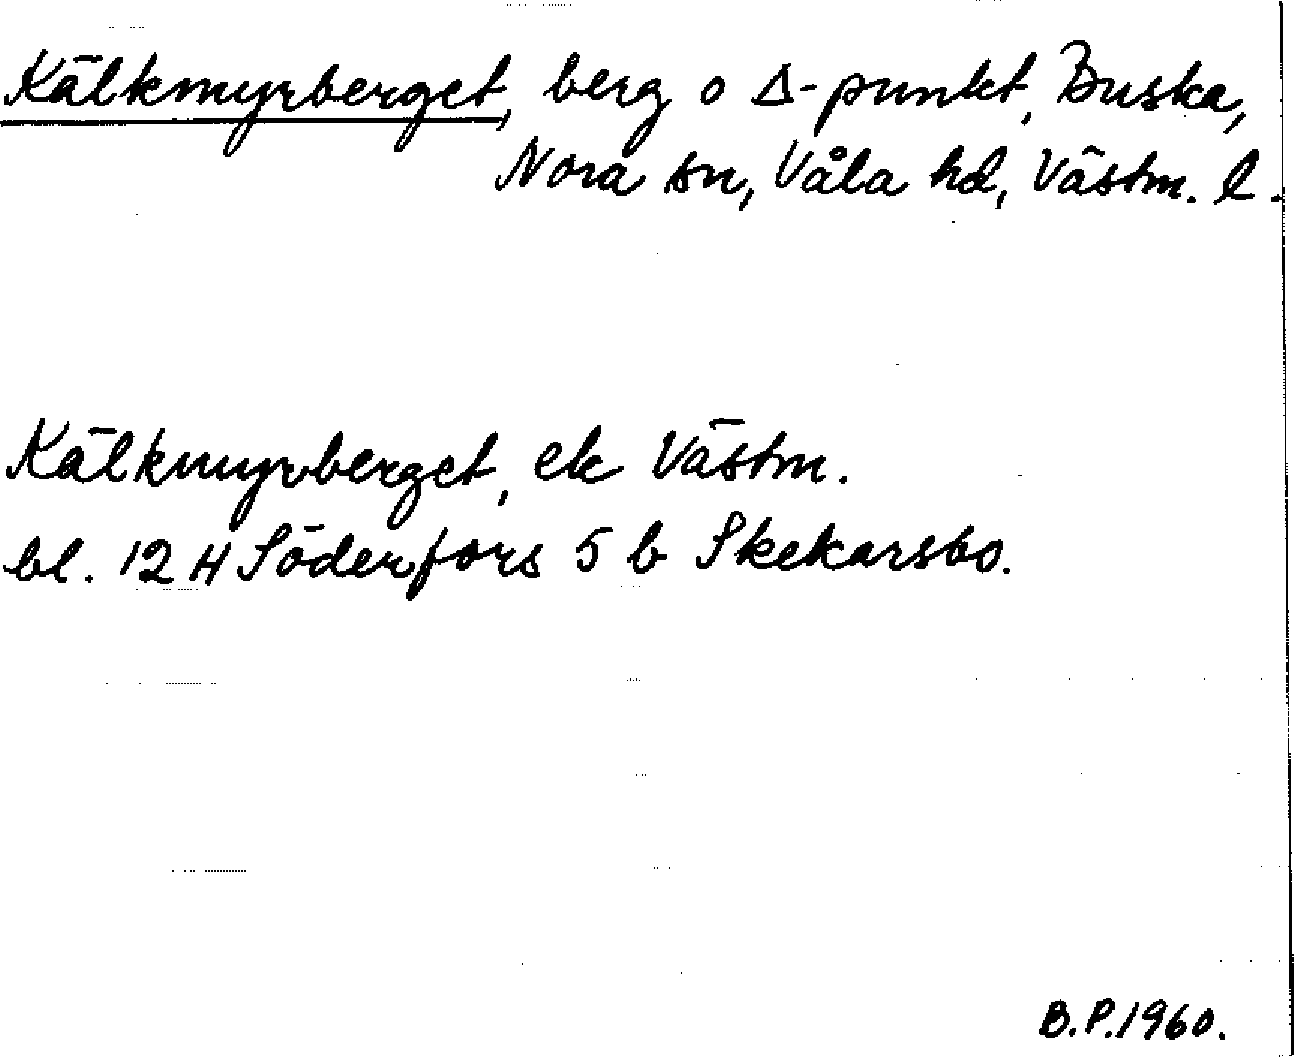 Kälkmyrberget, berg o Δ-punkt, Buska,
Nora sn, Våla hd, Västm. l.
Kälkmyrberget, ek Västm.
bl. 12 H Söderfors 5 b Skekarsbo.
B.P.1960.